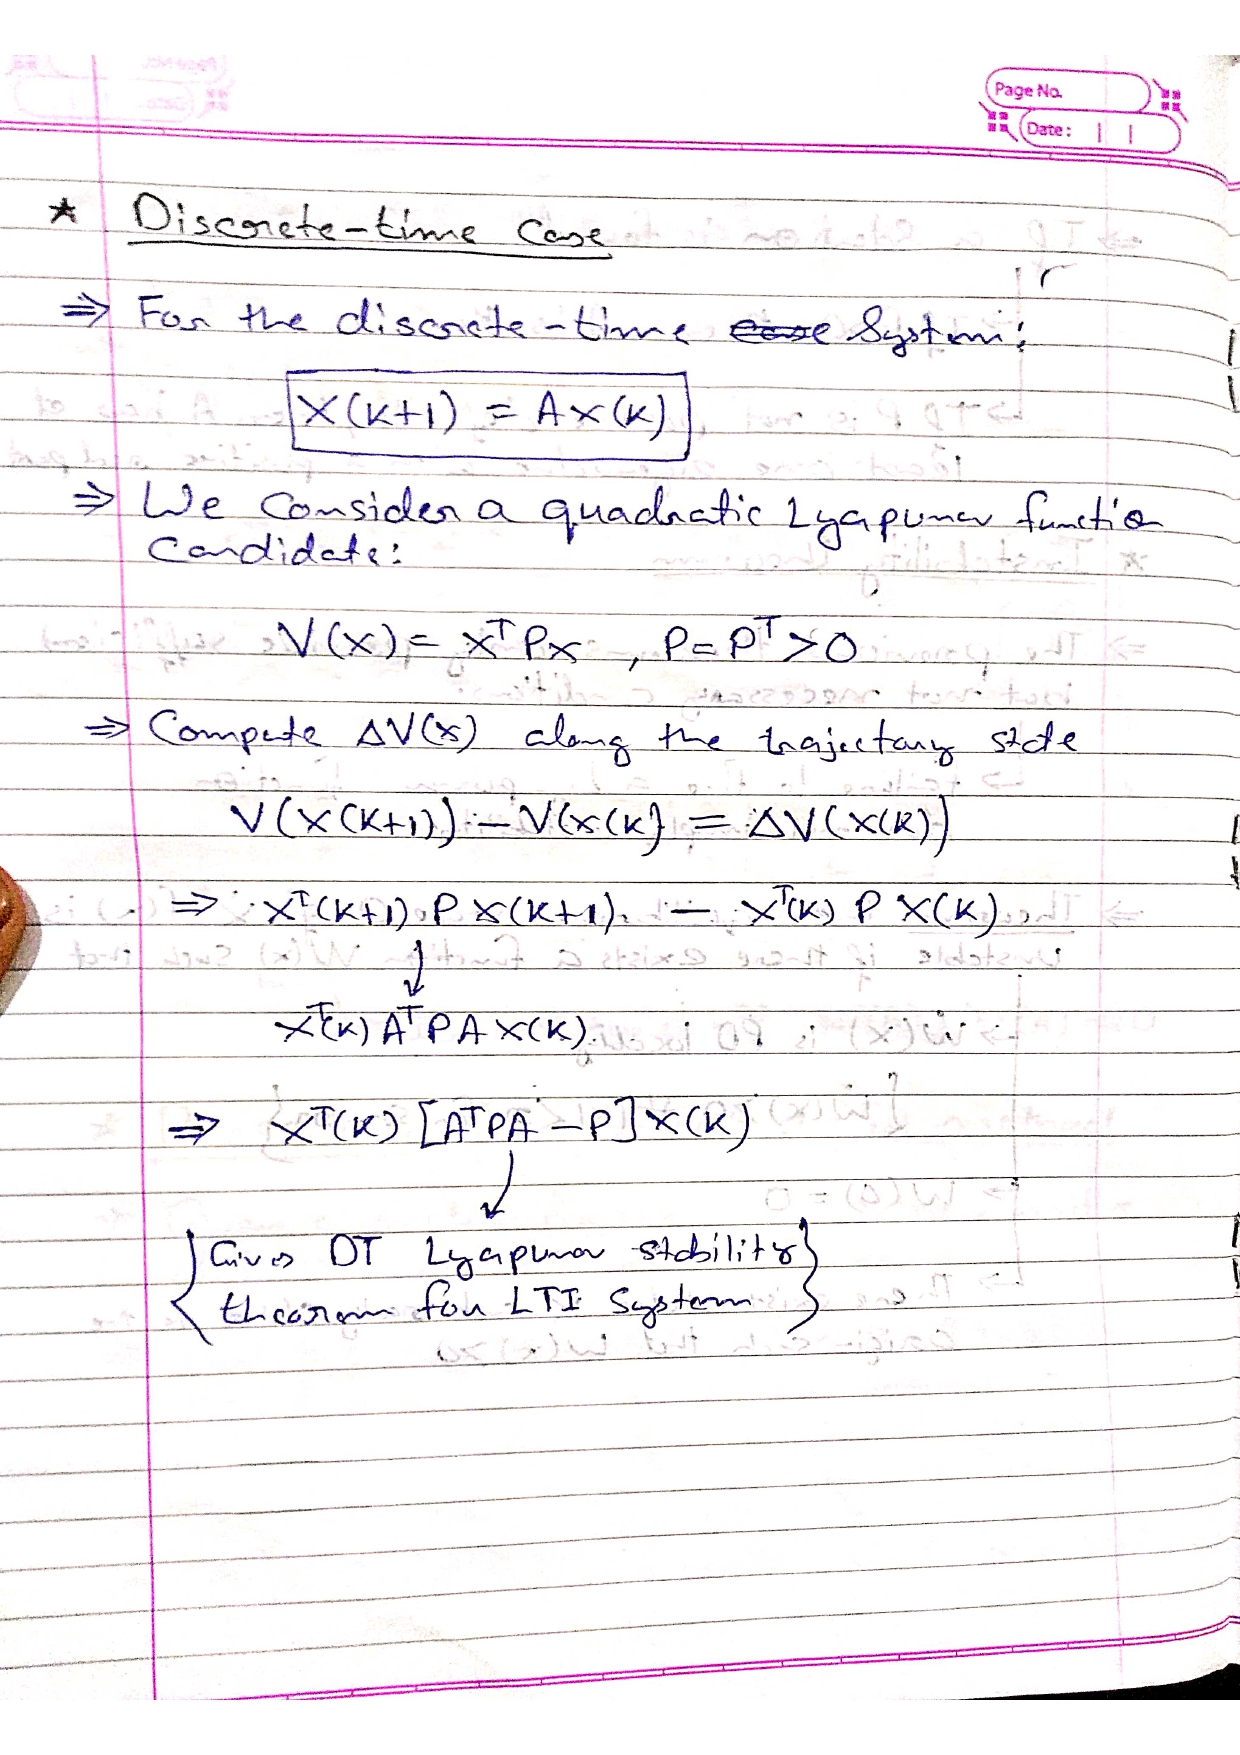 Page No.
Date:
* Discrete-time Case
⇒ For the discrete-time case System:
X(k+1) = Ax(k)
⇒ We Consider a quadratic Lyapunov function
Candidate:
V(x) = xᵀPx , P=Pᵀ>0
⇒ Compute ΔV(x) along the trajectory state
V(x(k+1)) - V(x(k) = ΔV(x(k))
⇒ xᵀ(k+1) P x(k+1) - xᵀ(k) P x(k)
↓
xᵀ(k) Aᵀ P A x(k)
⇒ xᵀ(k) [AᵀPA - P] x(k)
↓
{Gives DT Lyapunov stability
theorem for LTI System}